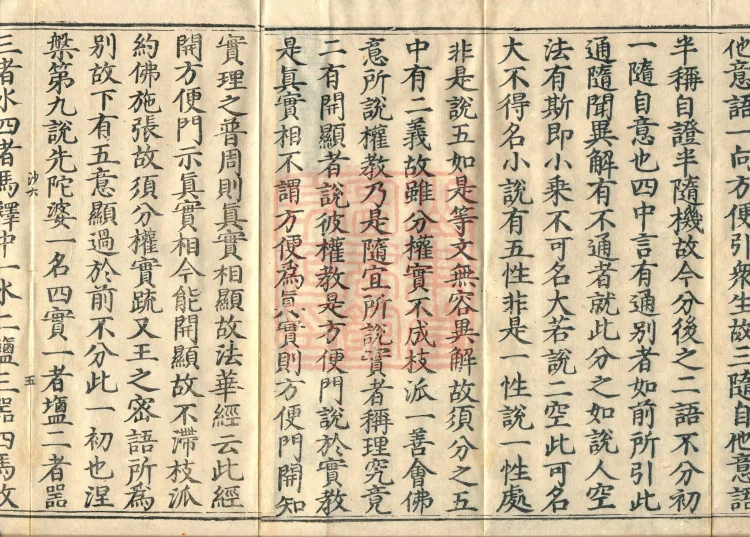 他意語一句方便引衆生故三隨自他意語
半稱自證半隨機故今分後之二語不分初
一隨自意也四中言有通別者如前所引此
通隨聞異解有不通者就此分之如說人空
法有斯即小乘不可名大若說二空此可名
大不得名小說有五性非是一性說一性處
非是說五如是等文無容異解故須分之五
中有二義故雖分權實不成枝派一善會佛
意所說權教乃是隨宜所說實者稱理究竟
二有開顯者說彼權教是方便門說於實教
是真實相不謂方便為真實則方便門開知
實理之普周則真實相顯故法華經云此經
開方便門示真實相今能開顯故不滯枝派
約佛施張故須分權實䟽又王之密語所為
別故下有五意顯過於前不分此一初也涅
槃第九說先陀婆一名四實一者塩二者器
沙六 五
三者水四者馬釋中一水二鹽三器四馬故